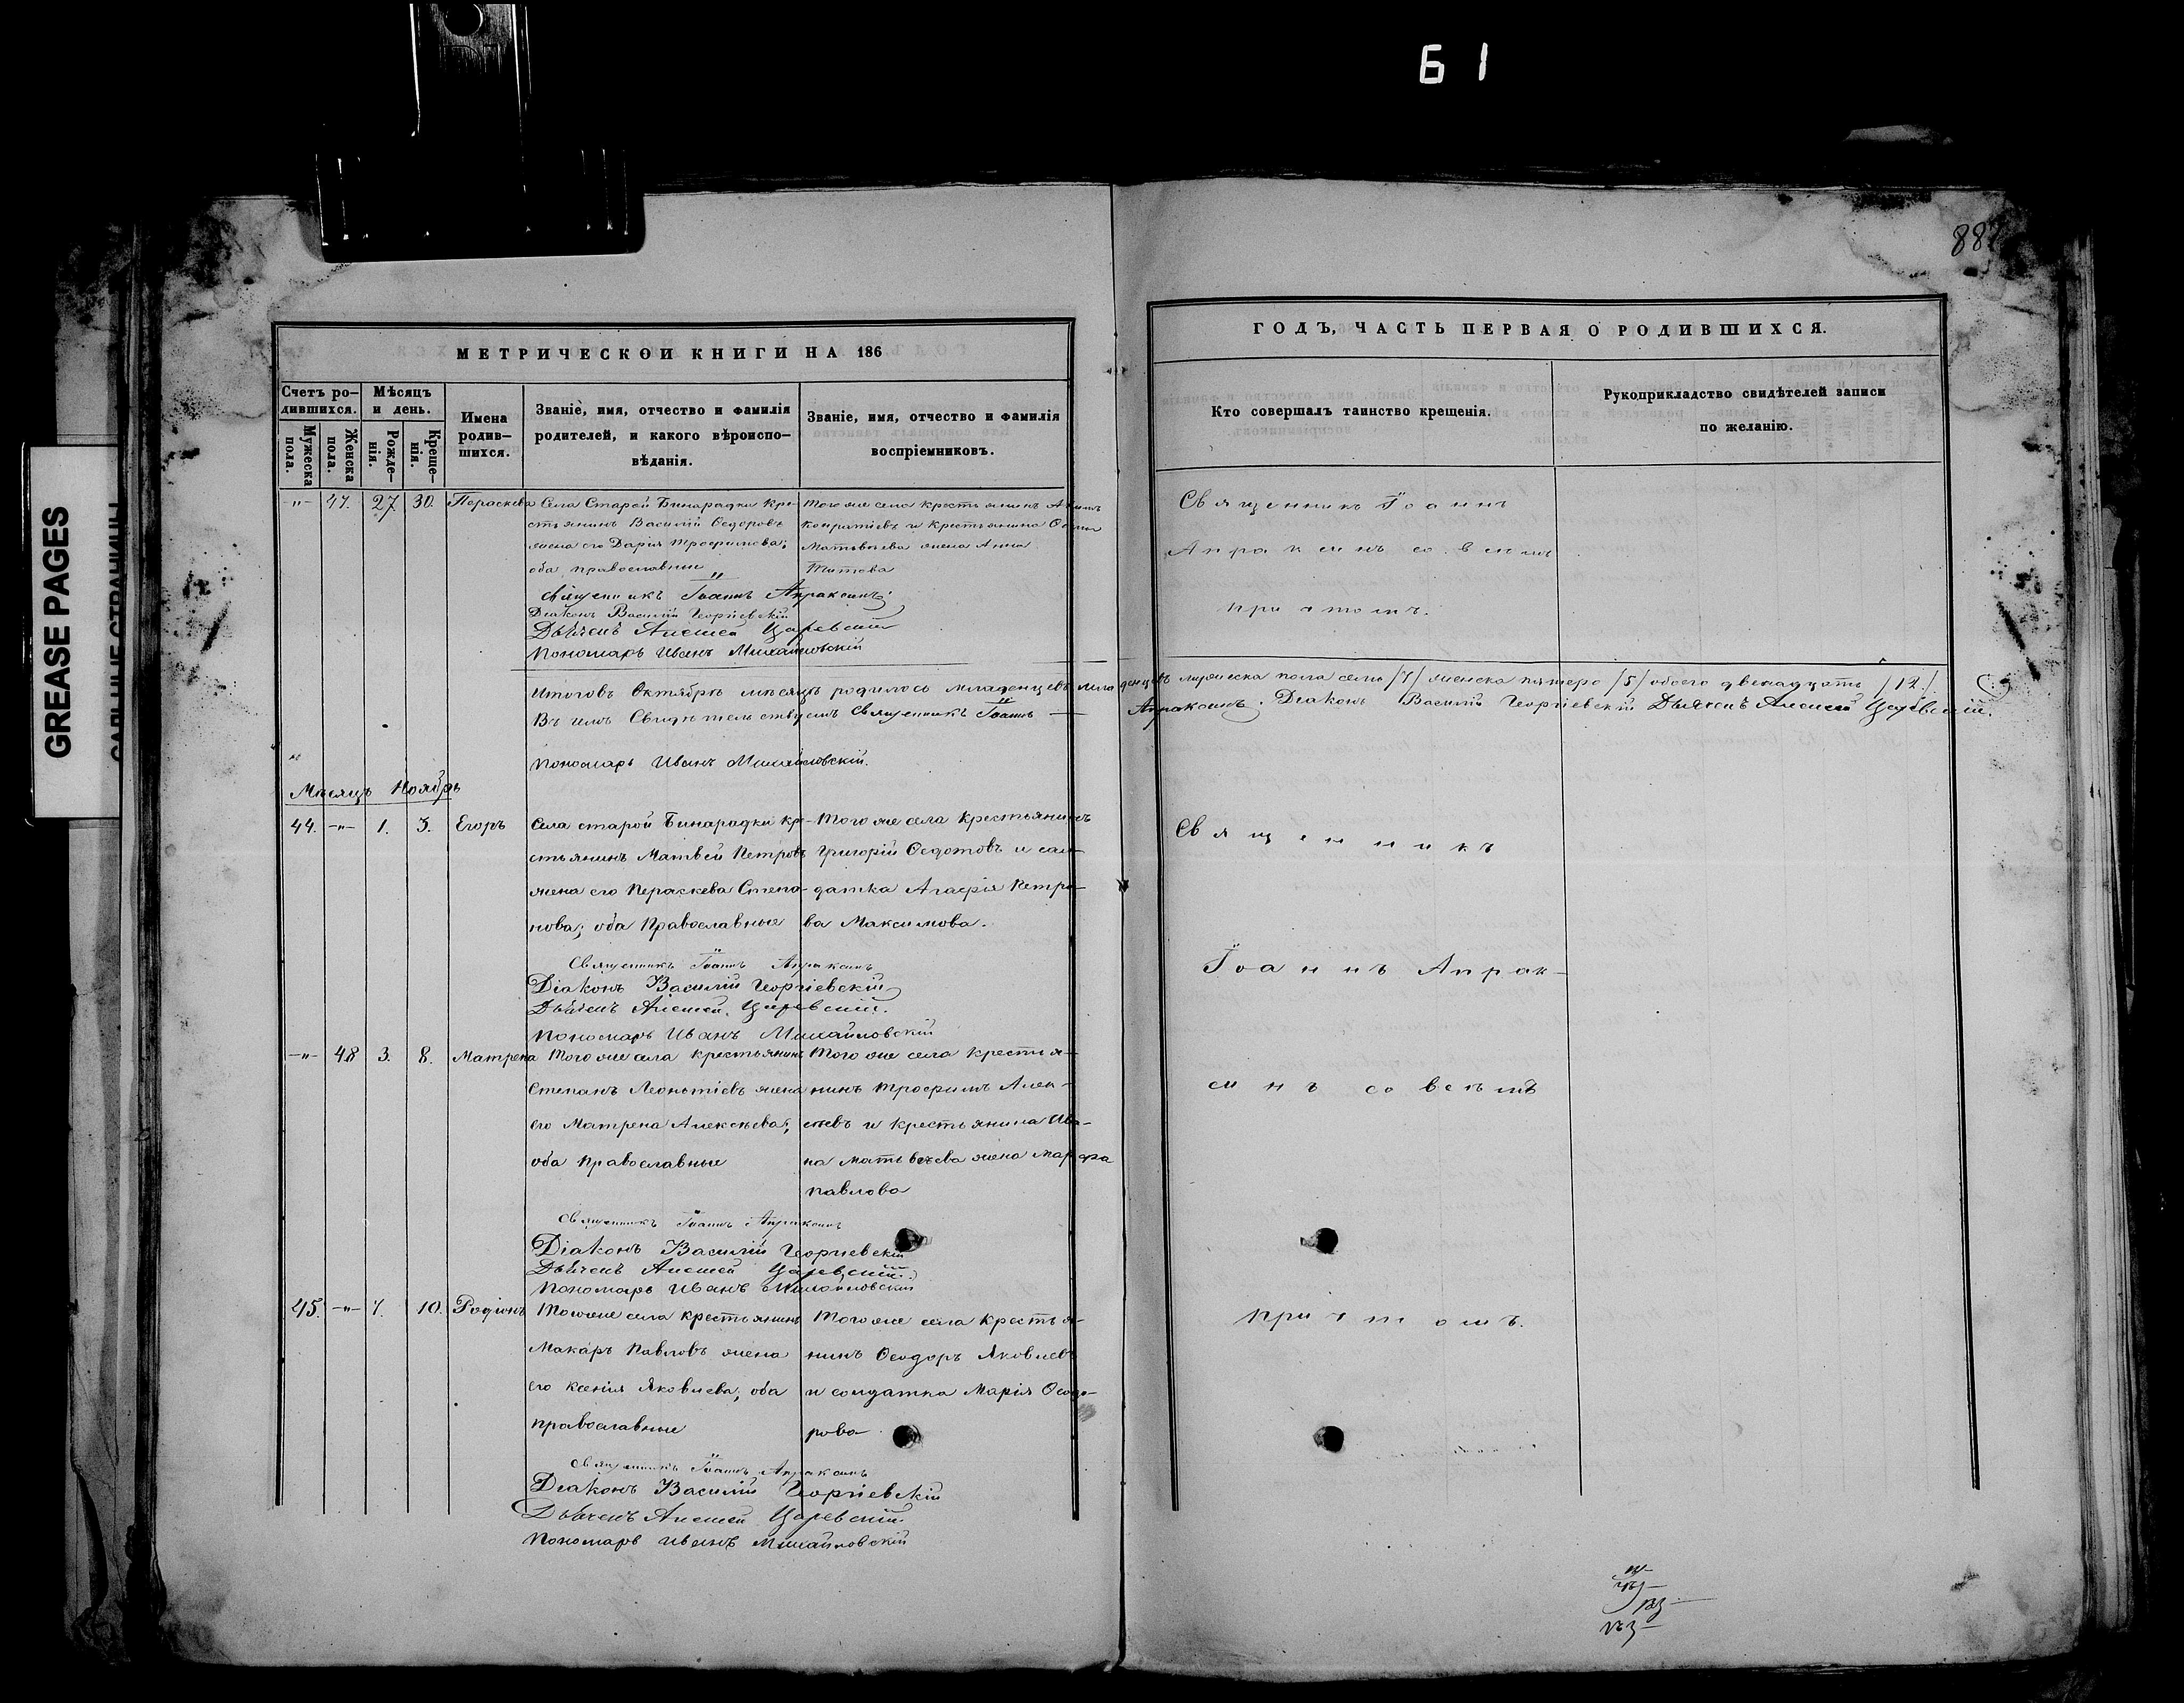 61
GREASE PAGES
887
МЕТРИЧЕСКОЙ КНИГИ НА 186
ГОДЪ, ЧАСТЬ ПЕРВАЯ О РОДИВШИХСЯ.
Счетъ ро-
дившихся.
Мужеска
пола.
Женска
пола.
Мѣсяцъ
и день.
Рожде-
нія.
Креще-
нія.
Имена
родив-
шихся.
Званіе, имя, отчество и фамилія
родителей, и какого вѣроиспо-
вѣданія.
Званіе, имя, отчество и фамилія
воспріемниковъ.
Кто совершалъ таинство крещенія.
Рукоприкладство свидѣтелей записи
по желанію.
-"- 47. 27 30. Пераскева
Села Старой Бинарадки кре-
стьянинъ Василій Ѳедоровъ
жена его Дарія Трофимова;
оба православные
Того же села крестьянинъ
и крестьянина
Матвѣева жена Анна
Титова
Священникъ Іоаннъ Апраксинъ
Діаконъ Василій Георгіевскій
Дьячекъ Алексей Царевскій
Пономарь Иванъ Михайловскій
Священникъ Іоаннъ
Апраксинъ со всемъ
причтомъ.
Итого въ Октябрѣ мѣсяцѣ родилось младенцевъ мужеска пола семь /7/ женска пятеро /5/ обоего двенадцать /12./
Въ чемъ Свидѣтельствуемъ Священникъ Іоаннъ — Апраксинъ. Діаконъ Василій Георгіевскій Дьячекъ Алексей Царевскій.
Пономарь Иванъ Михайловскій.
Мѣсяцъ Ноябрь
44. -"- 1. 3. Егоръ
Села старой Бинарадки кре-
стьянинъ Матвей Петровъ
жена его Пераскева Степа-
нова; оба Православные
Того же села крестьянинъ
Григорій Ѳедотовъ и сол-
датка Агафія Петро-
ва Максимова.
Священникъ Іоаннъ Апраксинъ
Діаконъ Василій Георгіевскій
Дьячекъ Алексей Царевскій.
Пономарь Иванъ Михайловскій
-"- 48 3. 8. Матрена
Того же села крестьянинъ
Степанъ Леонтіевъ жена
его Матрена Алексѣева;
оба православные
Того же села крестья-
нинъ Трофимъ Алек-
сѣевъ и крестьянина Ива-
на Матвѣева жена Марфа
Павлова
Священникъ Іоаннъ Апраксинъ
Діаконъ Василій Георгіевскій
Дьячекъ Алексей Царевскій.
Пономарь Иванъ Михайловскій
45. -"- 7. 10. Родіонъ
Того же села крестьянинъ
Макаръ Павловъ жена
его Ксенія Яковлева, оба
православные
Того же села крестья-
нинъ Ѳеодоръ Яковлевъ
и солдатка Марія Ѳеодо-
рова
Священникъ Іоаннъ Апраксинъ
Діаконъ Василій Георгіевскій
Дьячекъ Алексей Царевскій
Пономарь Иванъ Михайловскій
Священникъ
Іоаннъ Апрак-
синъ со всемъ
причтомъ.